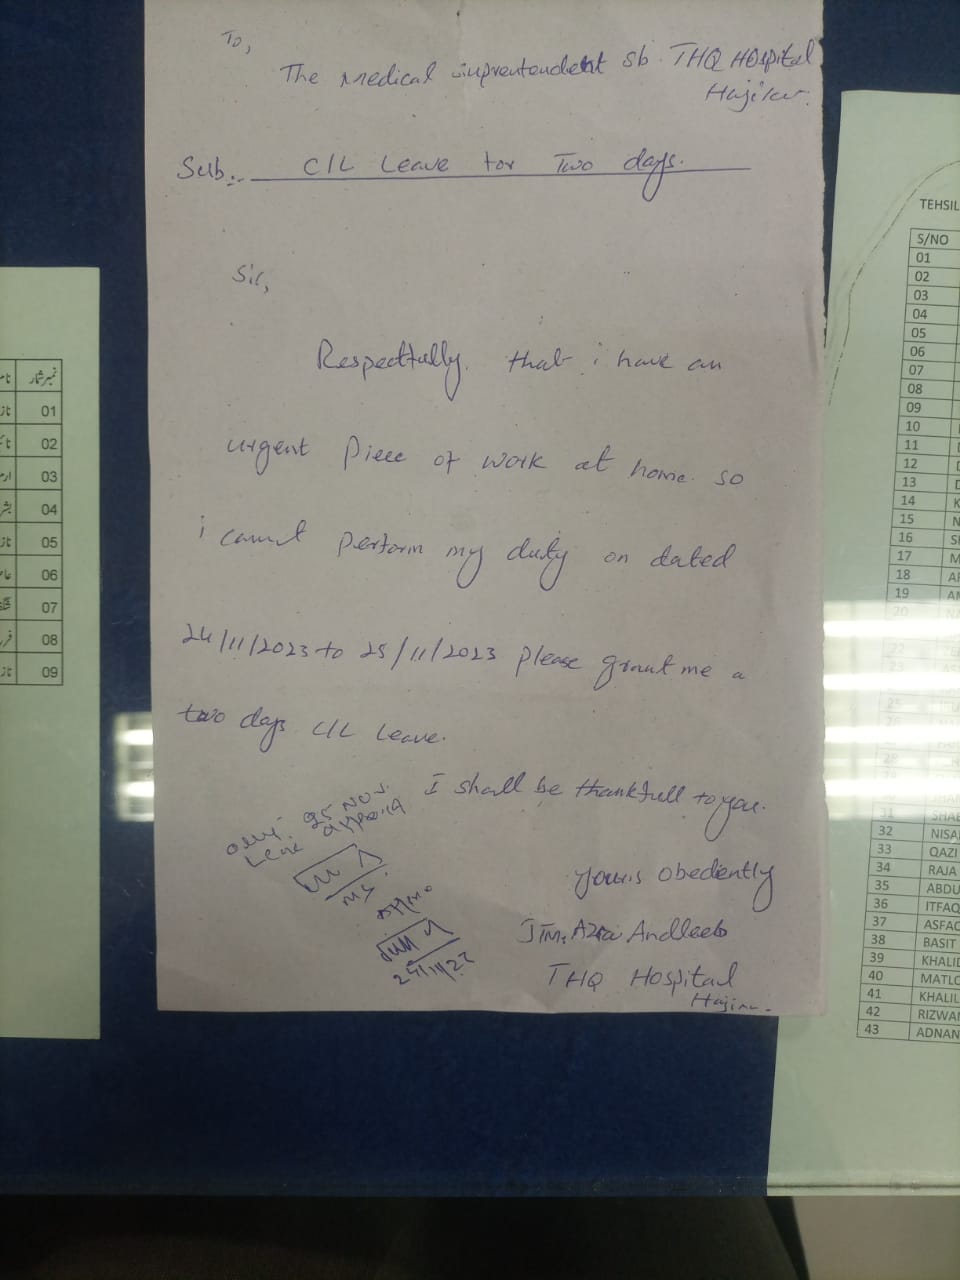 To,
The Medical suprentendent Sb. THQ Hospital
Hajira.
Sub:- C/L Leave for Two days.
Sir,
Respectfully. that i have an
urgent Piece of work at home. so
i cannot perform my duty on dated
24/11/2023 to 25/11/2023 please grant me a
two days C/L Leave.
I shall be thankfull to you.
only 25 NOV.
Leave
MS
yours obediently
Azra Andleeb
THQ Hospital
Hajira.
نمبر شمار
01
02
03
04
05
06
07
08
09
TEHSIL
S/NO
01
02
03
04
05
06
07
08
09
10
11
12
13
14 K
15 N
16
17 M
18
19
20
22
23
25
31 SHAB
32 NISA
33 QAZI
34 RAJA
35 ABDU
36 ITFAQ
37 ASFAQ
38 BASIT
39 KHALID
40 MATLO
41 KHALIL
42 RIZWAN
43 ADNAN